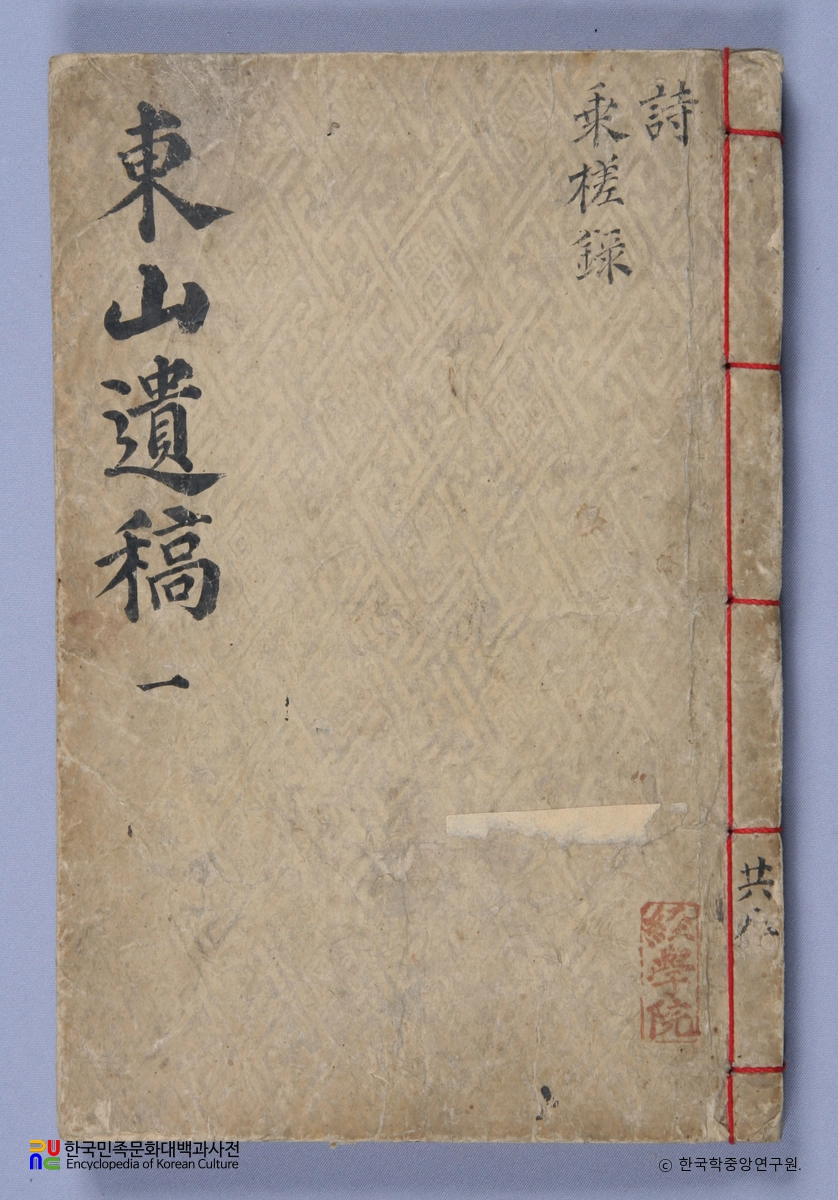 詩
乘槎錄
東山遺稿 一
共八
経學院
한국민족문화대백과사전
Encyclopedia of Korean Culture
ⓒ 한국학중앙연구원.